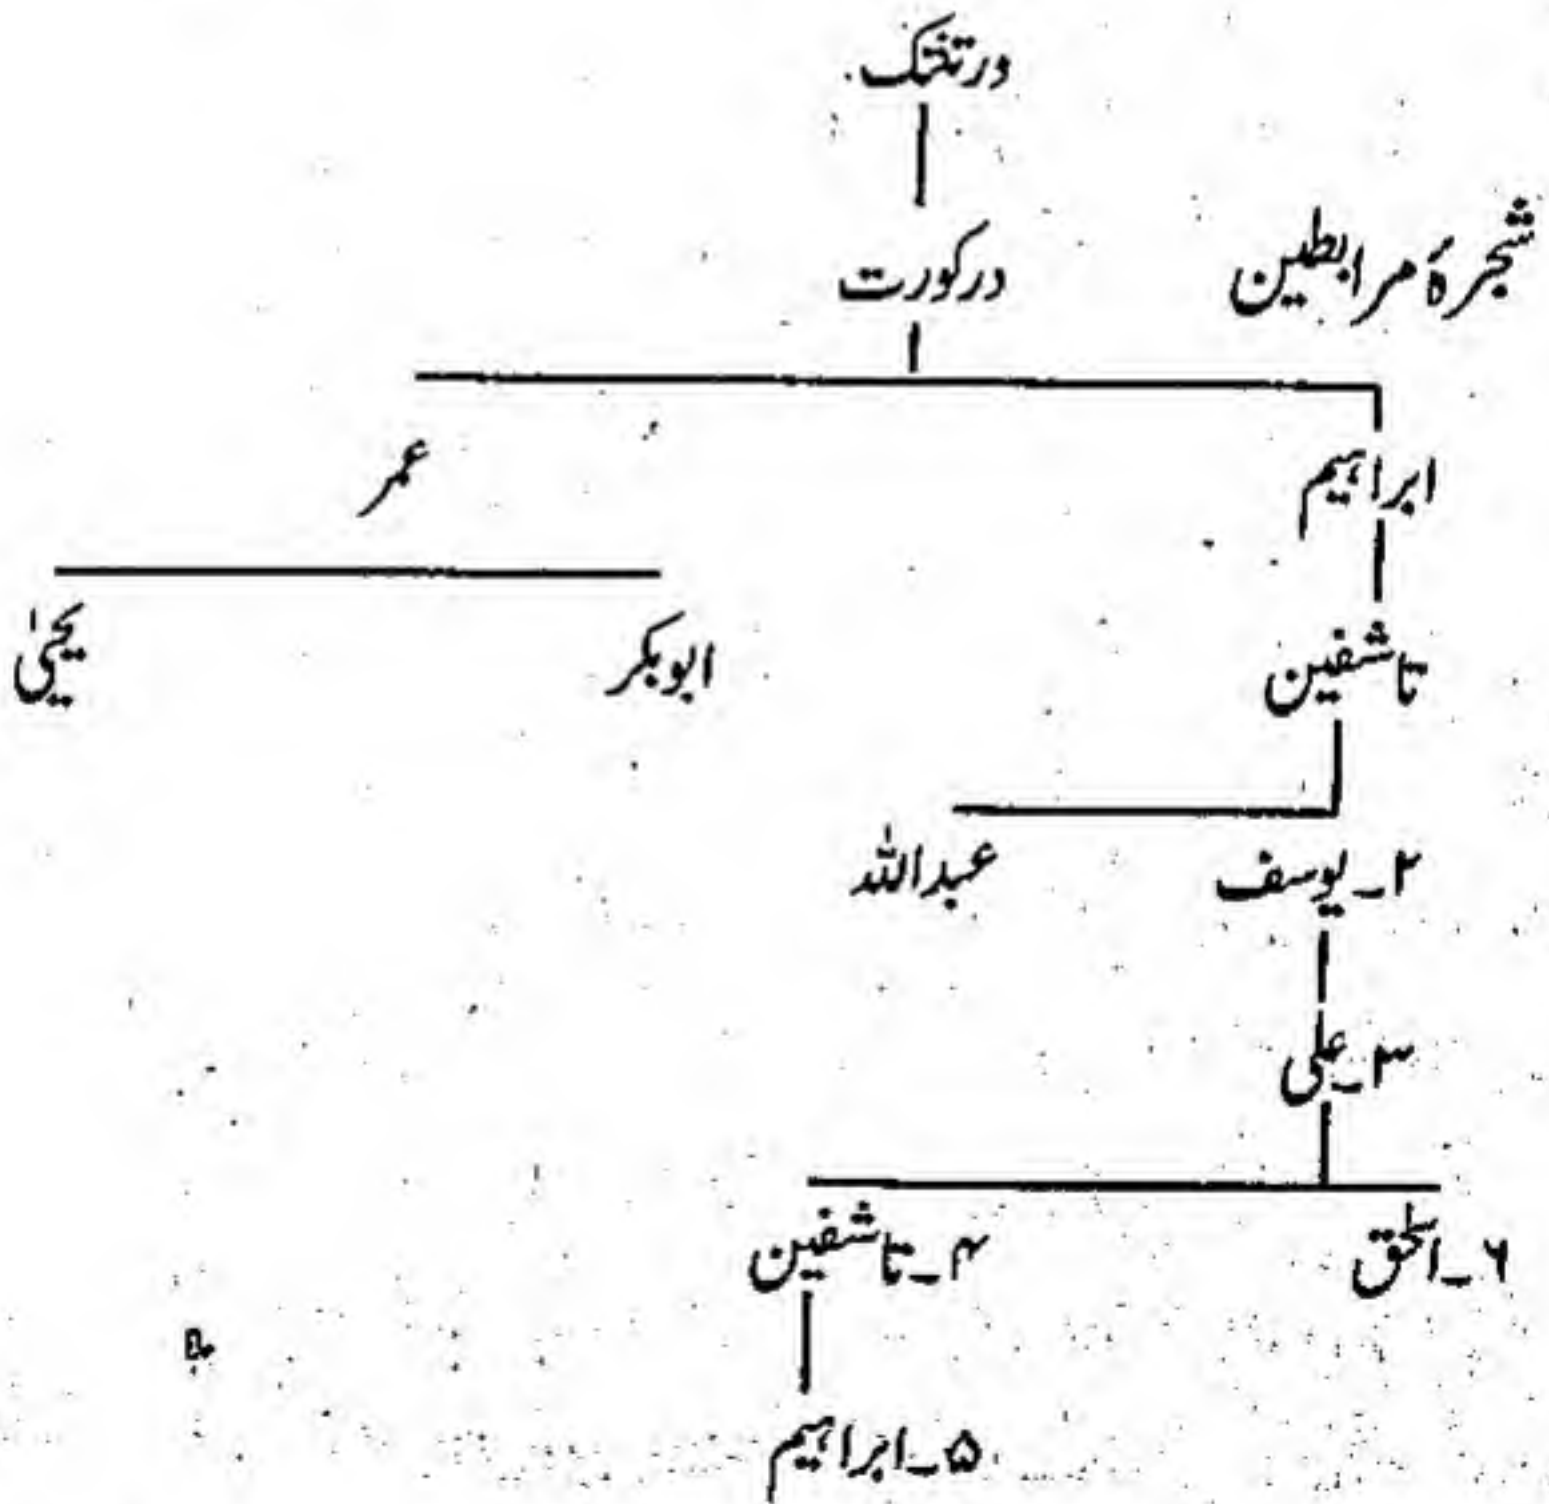 ورتنتک
شجرۂ مرابطین
درکورت
ابراہیم
عمر
تاشفین
ابوبکر
یحییٰ
۲۔یوسف
عبداللہ
۳۔علی
۶۔اسحٰق
۴۔تاشفین
۵۔ابراہیم